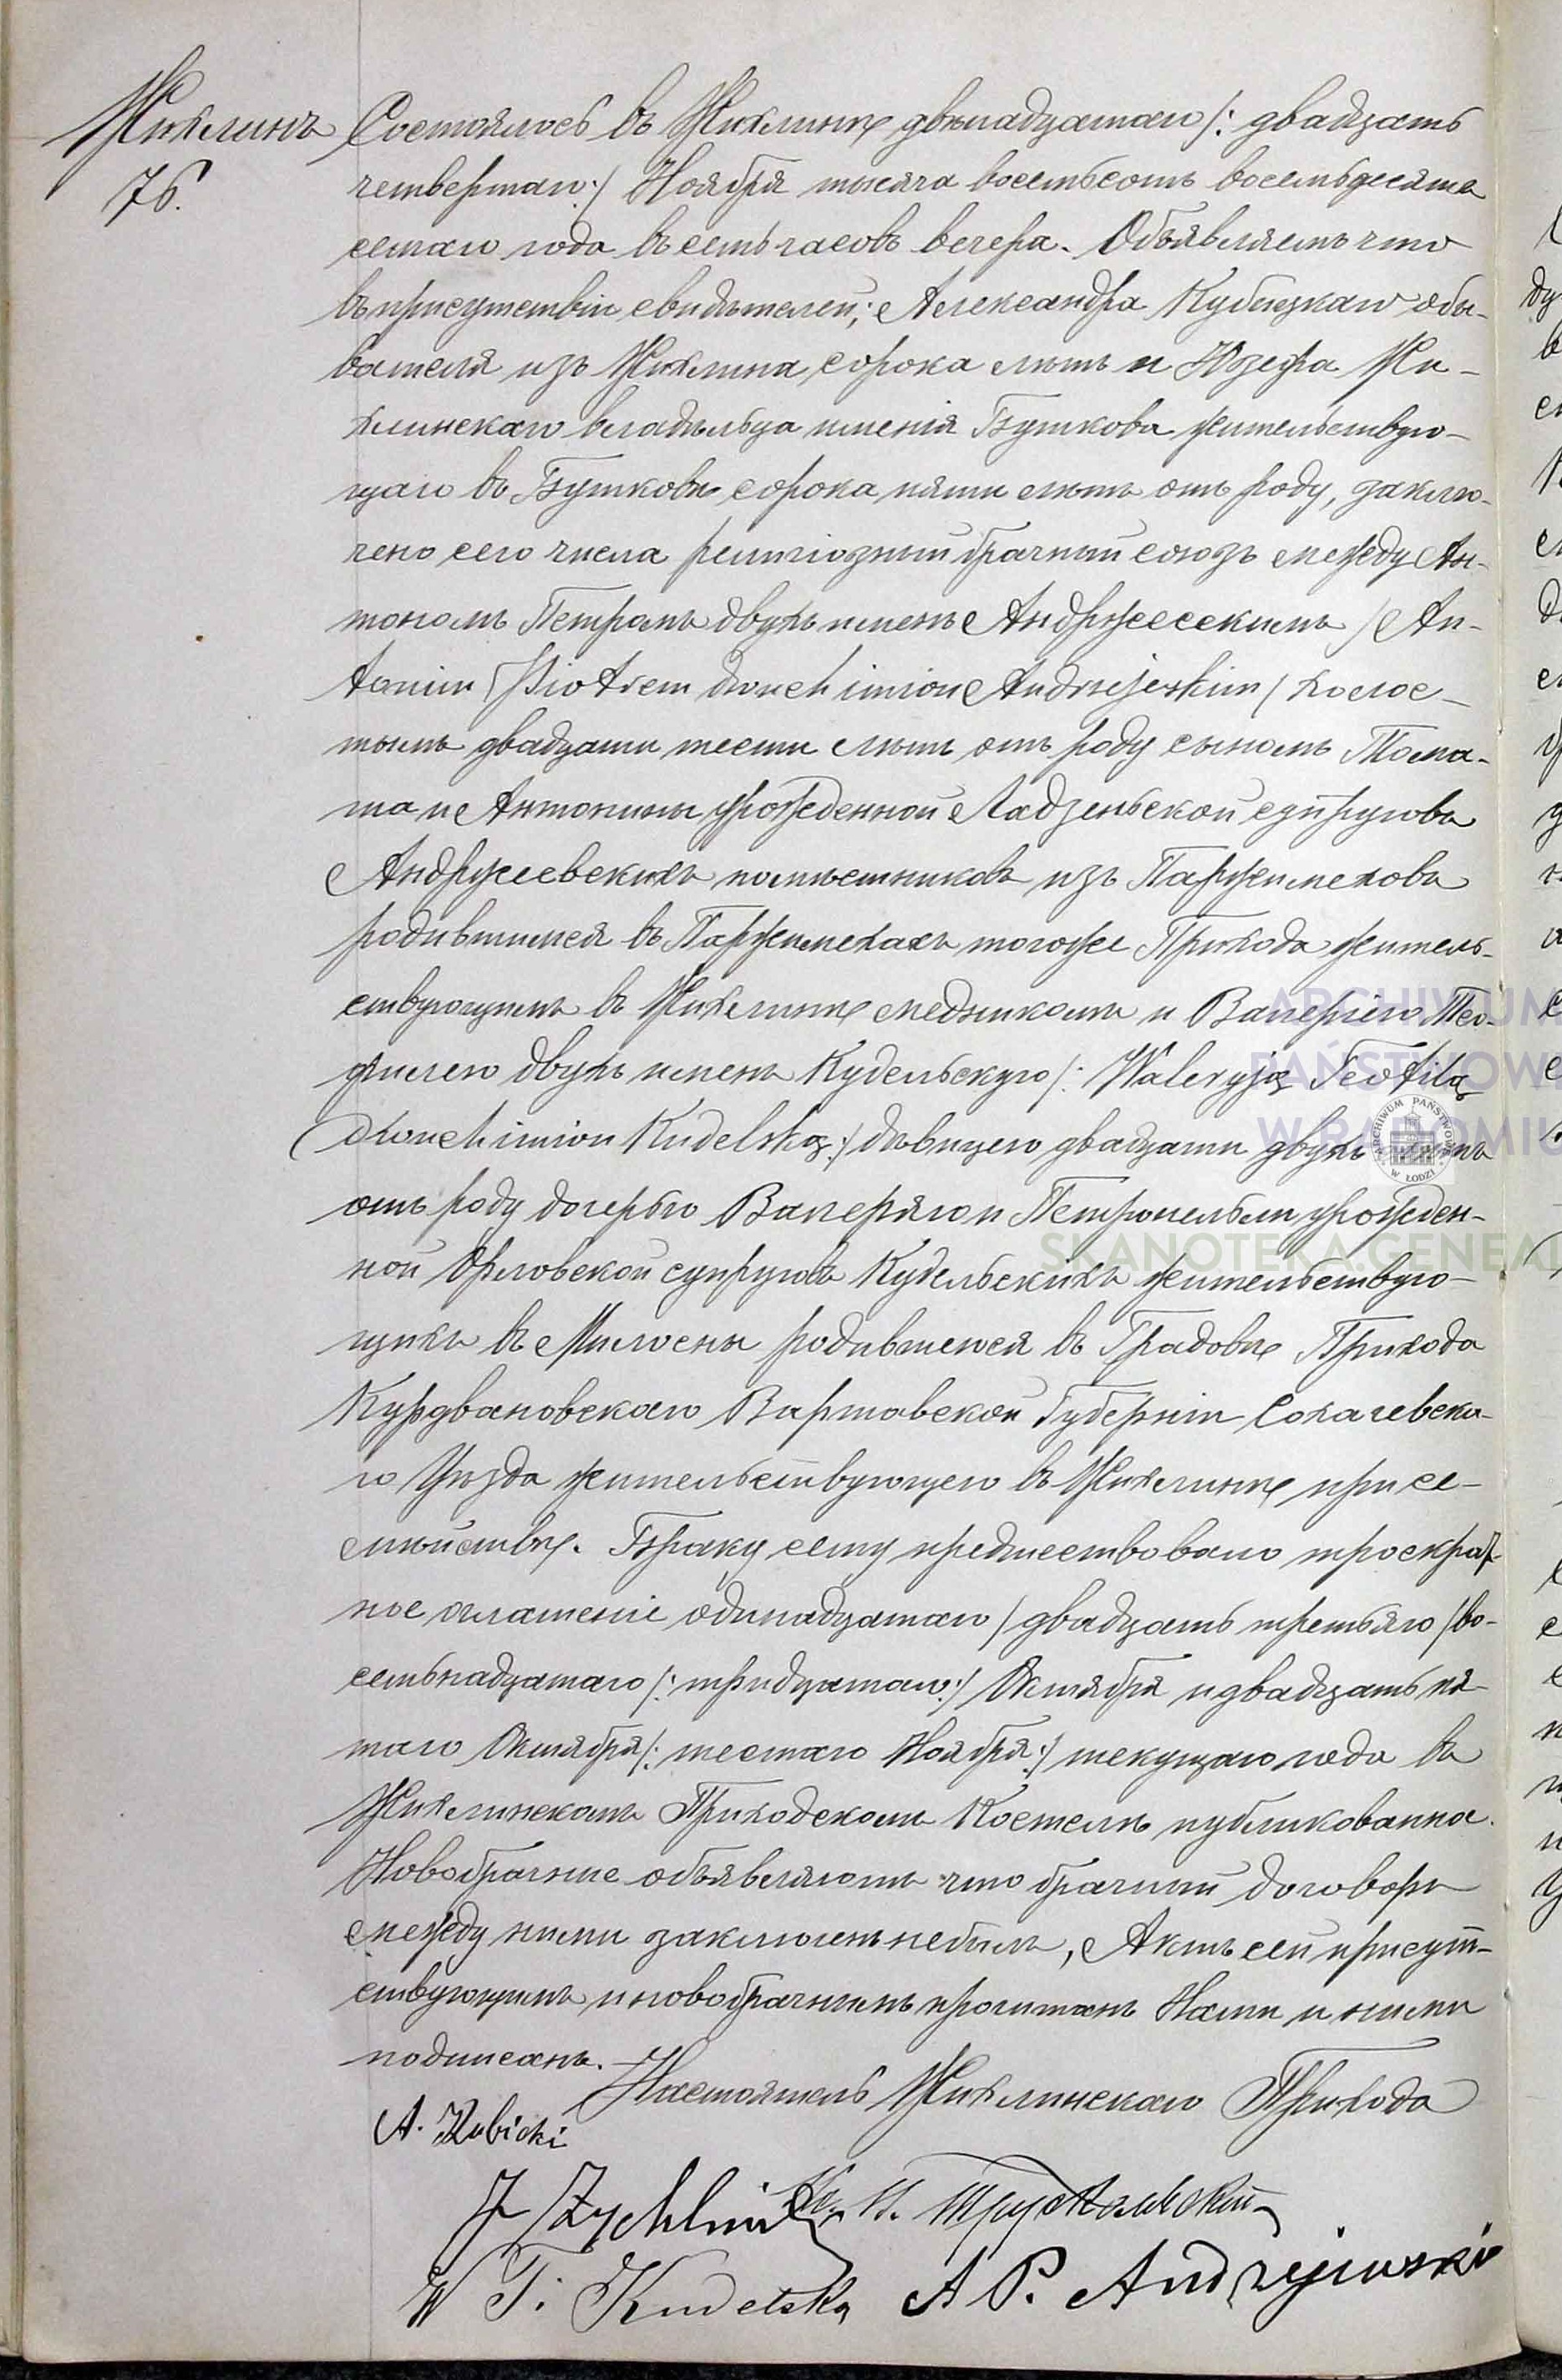 Жихлинъ
76.
Состоялось въ Жихлинѣ двѣнадцатаго /: двадцать
четвертаго :/ Ноября тысяча восемьсотъ восемьдесятъ
 года въ семь часовъ вечера. Объявляемъ что
въ присутствіи свидѣтелей; Александра Кубицкаго обы-
вателя изъ Жихлина, сорока лѣтъ и Юзефа Жи-
хлинскаго владѣльца имѣнія Буткова жительствую-
щаго въ Буткове сорока пяти лѣтъ отъ роду, заклю-
чено сего числа религіозный брачный союзъ между Ан-
тономъ Петромъ двухъ именъ Андржеескимъ / An-
tonim Piotrem dwuch imion Andrzejeskim / холос-
тымъ двадцати шести лѣтъ отъ роду сыномъ Тома-
ша и Антонины урожденной Ладзеньской супруговъ
Андржеевскихъ помѣстниковъ изъ Паржимеховъ
родившимся въ Паржимехахъ тогоже Прихода житель-
ствующимъ въ Жихлинѣ медикомъ и Валерію Тео-
филею двухъ именъ Кудельскую /: Waleryją Teofilą
dwuch imion Kudelską :/ дѣвицею двадцати двухъ лѣтъ
отъ роду дочерью Валеряго и Петронельли урожден-
ной Орловской супруговъ Кудельскихъ жительствую-
щихъ въ Милосны родившейся въ Градовѣ Прихода
Курдвановскаго Варшавской Губерніи Сохачевска-
го Уѣзда жительствующею въ Жихлинѣ при се-
мѣйствѣ. Браку сему предшествовало троекрат-
ное оглашеніе одинадцатаго / двадцать третьяго / во-
семьнадцатаго /: тридцатаго :/ Октября и двадцать пя-
таго Октября /: шестаго Ноября :/ текущаго года въ
Жихлинскомъ Приходскомъ Костелѣ публикованное.
Новобрачные объявляютъ что брачный договоръ
между ними заключенъ небылъ, Актъ сей присут-
ствующимъ и новобрачнымъ прочитанъ Нами и ними
подписанъ.
Настоятель Жихлинскаго Прихода
A. Kubicki
J Żychliński
W T. Kudelska A P. Andrzejewski
ARCHIWUM
PAŃSTWOWE
W RADOMIU
ARCHIWUM PAŃSTWOWE W ŁODZI
SKANOTEKA.GENEAL